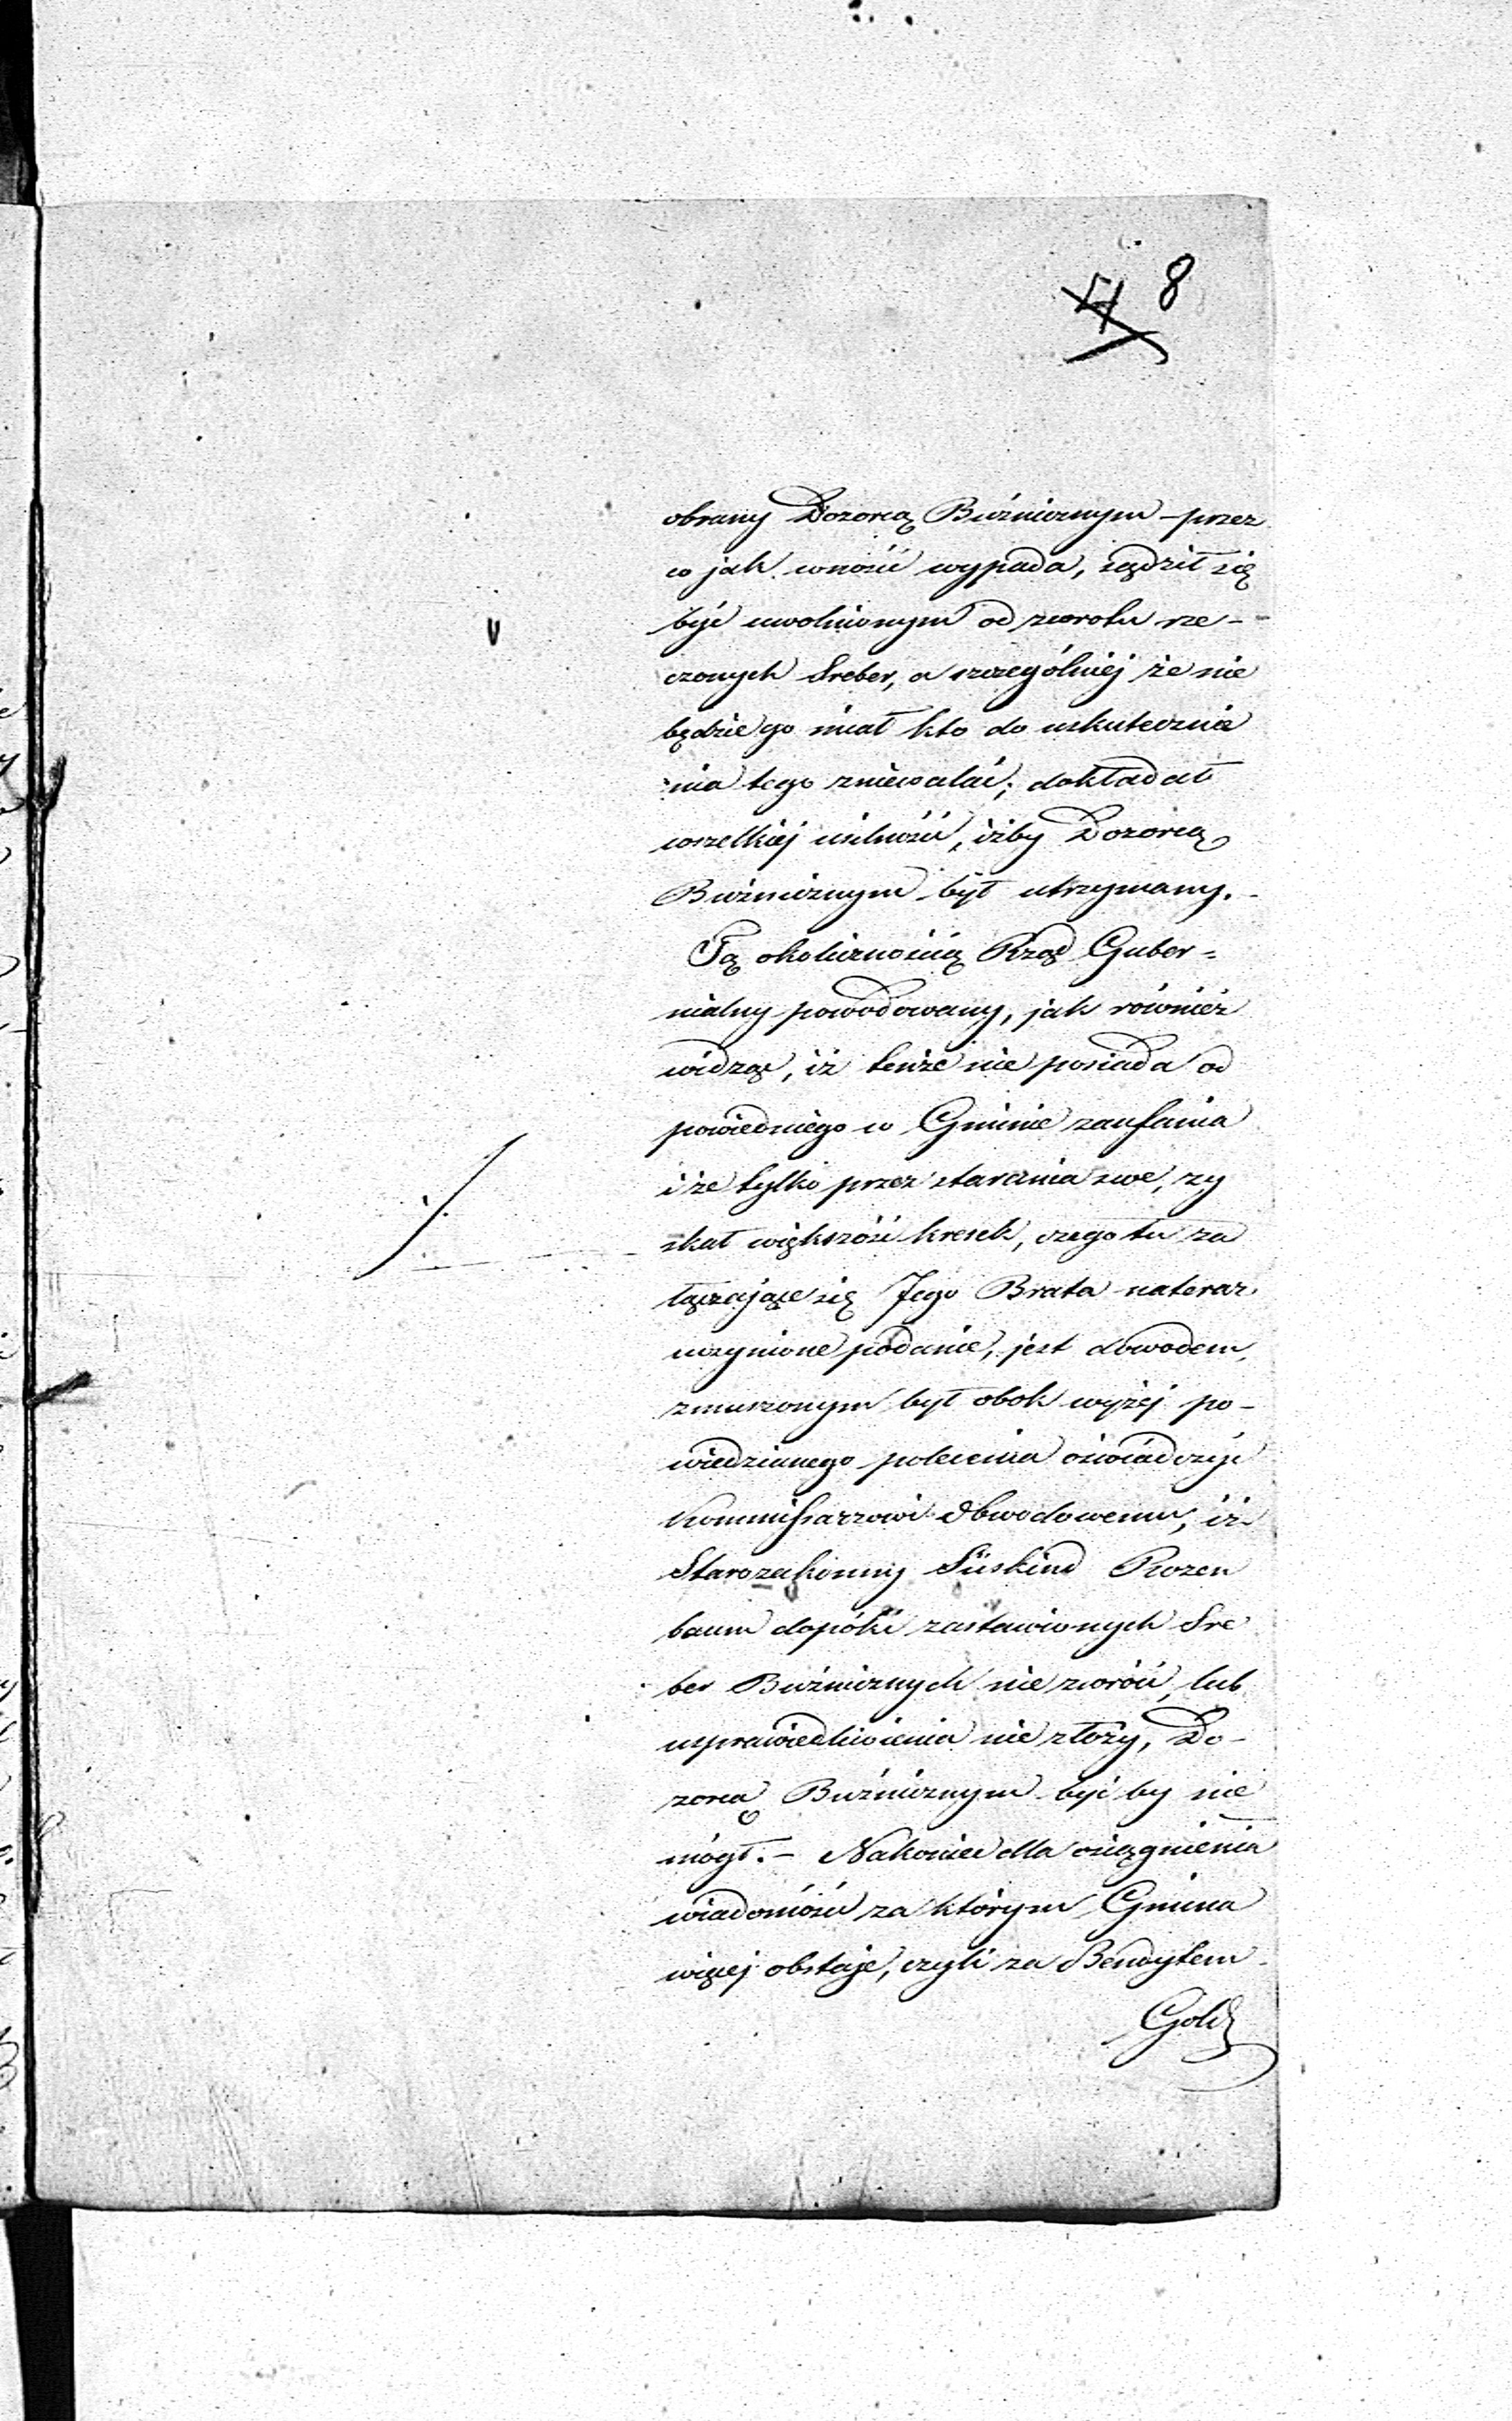 8
obrany Dozorcą Bóżnicznym – przez
co jak wnosić wypada, sądził się
być uwolnionym od zwrotu rze-
czonych Sreber, a szczególniej że nie
będzie go miał kto do uskutecznie
nia tego zniewalać; dokładał
wszelkiej usilności, iżby Dozorcą
Bóżnicznym był utrzymany.
Tą okolicznością Rząd Guber=
nialny powodowany, jak również
widząc, iż tenże nie posiada od
powiedniego w Gminie zaufania
i że tylko przez starania swe, zy
skał większość kresek, czego tu za
łączające się Jego Brata nateraz
uczynione podanie, jest dowodem,
zmuszonym był obok wyżej po-
wiedzianego polecenia oświadczyć
Kommissarzowi Obwodowemu, iż
Starozakonny Süskind Rozen
baum dopóki zastawionych Sre
ber Bóżnicznych nie zwróci, lub
usprawiedliwienia nie złoży, Do-
zorcą Bóżnicznym być by nie
mógł. – Nakoniec dla osiągnienia
wiadomości za którym Gmina
więcej obstaje, czyli za Bendytem
Gold